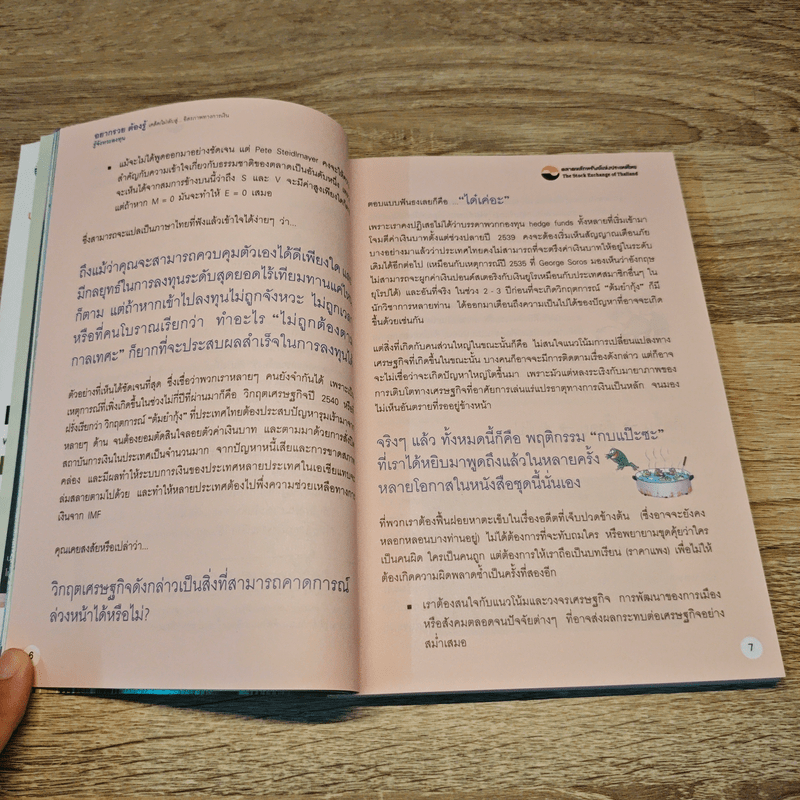 อยากรวย ต้องรู้ เคล็ด(ไม่)ลับสู่...อิสรภาพทางการเงิน
รู้จังหวะลงทุน
แม้จะไม่ได้พูดออกมาอย่างชัดเจน แต่ Pete Steidlmayer คงจะให้
สำคัญกับความเข้าใจเกี่ยวกับธรรมชาติของตลาดเป็นอันดับหนึ่ง
จะเห็นได้จากสมการข้างบนนี้ว่าถึง S และ V จะมีค่าสูงเพียงใด
แต่ถ้าหาก M = 0 มันจะทำให้ E = 0 เสมอ
ซึ่งสามารถจะแปลเป็นภาษาไทยที่ฟังแล้วเข้าใจได้ง่ายๆ ว่า...
ถึงแม้ว่าคุณจะสามารถควบคุมตัวเองได้ดีเพียงใด และ
มีกลยุทธ์ในการลงทุนระดับสุดยอดไร้เทียมทานแค่ไหน
ก็ตาม แต่ถ้าหากเข้าไปลงทุนไม่ถูกจังหวะ ไม่ถูกเวลา
หรือที่คนโบราณเรียกว่า ทำอะไร “ไม่ถูกต้องตาม
กาลเทศะ” ก็ยากที่จะประสบผลสำเร็จในการลงทุนได้
ตัวอย่างที่เห็นได้ชัดเจนที่สุด ซึ่งเชื่อว่าพวกเราหลายๆ คนยังจำกันได้ เพราะเป็น
เหตุการณ์ที่เพิ่งเกิดขึ้นในช่วงไม่กี่ปีที่ผ่านมาก็คือ วิกฤตเศรษฐกิจปี 2540 หรือ
ฝรั่งเรียกว่า วิกฤตการณ์ “ต้มยำกุ้ง” ที่ประเทศไทยต้องประสบปัญหารุมเร้ามาจาก
หลายๆ ด้าน จนต้องยอมตัดสินใจลอยตัวค่าเงินบาท และตามมาด้วยการสั่งปิด
สถาบันการเงินในประเทศเป็นจำนวนมาก จากปัญหาหนี้เสียและการขาดสภาพ
คล่อง และมีผลทำให้ระบบการเงินของประเทศหลายประเทศในเอเชียแทบจะ
ล่มสลายตามไปด้วย และทำให้หลายประเทศต้องไปพึ่งความช่วยเหลือทางการ
เงินจาก IMF
คุณเคยสงสัยหรือเปล่าว่า...
วิกฤตเศรษฐกิจดังกล่าวเป็นสิ่งที่สามารถคาดการณ์
ล่วงหน้าได้หรือไม่?
6
ตลาดหลักทรัพย์แห่งประเทศไทย
The Stock Exchange of Thailand
ตอบแบบฟันธงเลยก็คือ ...“ได้เค่อะ”
เพราะเราคงปฏิเสธไม่ได้ว่าบรรดาพวกกองทุน hedge funds ทั้งหลายที่เริ่มเข้ามา
โจมตีค่าเงินบาทตั้งแต่ช่วงปลายปี 2539 คงจะต้องเริ่มเห็นสัญญาณเตือนภัย
บางอย่างมาแล้วว่าประเทศไทยคงไม่สามารถที่จะตรึงค่าเงินบาทให้อยู่ในระดับ
เดิมได้อีกต่อไป (เหมือนกับเหตุการณ์ปี 2535 ที่ George Soros มองเห็นว่าอังกฤษ
ไม่สามารถจะผูกค่าเงินปอนด์สเตอริงกับเงินยูโรเหมือนกับประเทศสมาชิกอื่นๆ ใน
ยุโรปได้) และอันที่จริง ในช่วง 2 - 3 ปีก่อนที่จะเกิดวิกฤตการณ์ “ต้มยำกุ้ง” ก็มี
นักวิชาการหลายท่าน ได้ออกมาเตือนถึงความเป็นไปของปัญหาที่อาจจะเกิด
ขึ้นด้วยเช่นกัน
แต่สิ่งที่เกิดกับคนส่วนใหญ่ในขณะนั้นก็คือ ไม่สนใจแนวโน้มการเปลี่ยนแปลงทาง
เศรษฐกิจที่เกิดขึ้นในขณะนั้น บางคนก็อาจจะมีการติดตามเรื่องดังกล่าว แต่ก็อาจ
จะไม่เชื่อว่าจะเกิดปัญหาใหญ่โตขึ้นมา เพราะมัวแต่หลงระเริงกับมายาภาพของ
การเติบโตทางเศรษฐกิจที่อาศัยการเล่นแร่แปรธาตุทางการเงินเป็นหลัก จนมอง
ไม่เห็นอันตรายที่รออยู่ข้างหน้า
จริงๆ แล้ว ทั้งหมดนี้ก็คือ พฤติกรรม “กบแป๊ะซะ”
ที่เราได้หยิบมาพูดถึงแล้วในหลายครั้ง
หลายโอกาสในหนังสือชุดนี้นั่นเอง
ที่พวกเราต้องฟื้นฝอยหาตะเข็บในเรื่องอดีตที่เจ็บปวดข้างต้น (ซึ่งอาจจะยังคง
หลอกหลอนบางท่านอยู่) ไม่ได้ต้องการที่จะทับถมใคร หรือพยายามขุดคุ้ยว่าใคร
เป็นคนผิด ใครเป็นคนถูก แต่ต้องการให้เราถือเป็นบทเรียน (ราคาแพง) เพื่อไม่ให้
ต้องเกิดความผิดพลาดซ้ำเป็นครั้งที่สองอีก
เราต้องสนใจกับแนวโน้มและวงจรเศรษฐกิจ การพัฒนาของการเมือง
หรือสังคมตลอดจนปัจจัยต่างๆ ที่อาจส่งผลกระทบต่อเศรษฐกิจอย่าง
สม่ำเสมอ
7